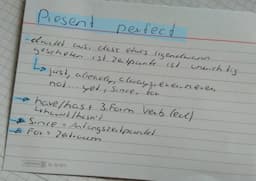 Present perfect
- drückt aus, dass etwas irgendwann
geschehen ist Zeitpunkt ist unwichtig
↳ just, already, always, ever, never
not ... yet, since, for
→ have/has + 3. Form Verb (ed)
haven't/hasn't
→ Since = Anfangszeitpunkt
→ For = Zeitraum